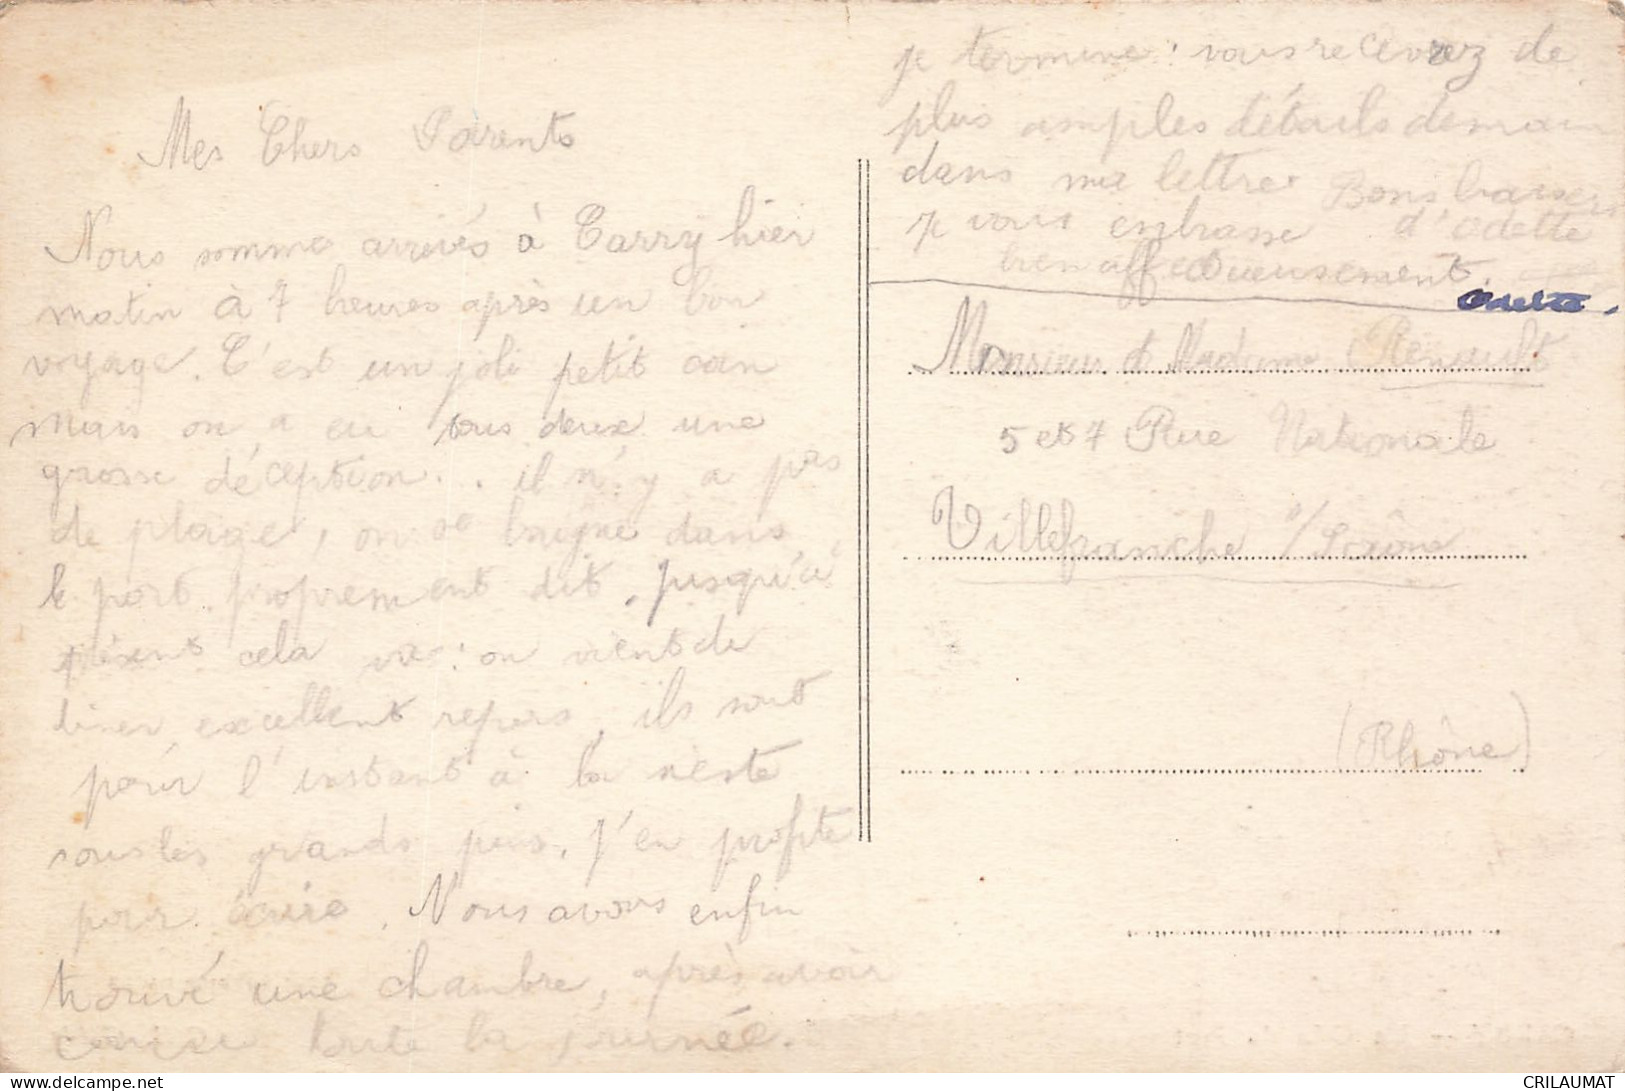 Mes Chers Parents
Nous somme arrivés à Carry hier
matin à 7 heures après un bon
voyage. C'est un joli petit coin
mais on a eu tous deux une
grosse déception... il n'y a pas
de plage, on se baigne dans
le port proprement dit. Jusqu'à
présent cela va : on vient de
diner, excellent repas, ils sont
pour l'instant à la sieste
sous les grands pins, j'en profite
pour écrire. Nous avons enfin
trouvé une chambre, après avoir
toute la journée.
je termine : vous recevrez de
plus amples détails demain
dans ma lettre
Bons baisers
je vous embrasse
d'Odette
bien affectueusement.
Odette.
Monsieur et Madame Renault
5 et 7 Rue Nationale
Villefranche s/Saône
(Rhône)
CRILAUMAT